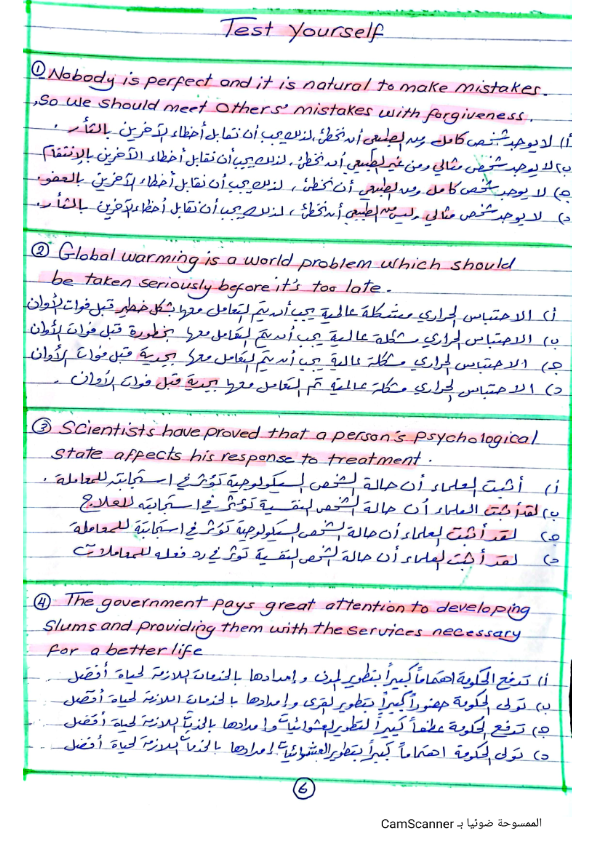 Test Yourself
① Nobody is perfect and it is natural to make mistakes.
So we should meet others' mistakes with forgiveness.
أ) لا يوجد شخص كامل ومن الطبيعي أن نخطئ، لذلك يجب أن نقابل أخطاء الآخرين بالثأر.
ب) لا يوجد شخص مثالي ومن غير الطبيعي أن نخطئ، لذلك يجب أن نقابل أخطاء الآخرين بالانتقام
ج) لا يوجد شخص كامل ومن الطبيعي أن نخطئ، لذلك يجب أن نقابل أخطاء الآخرين بالعفو.
د) لا يوجد شخص مثالي وليس من الطبيعي أن نخطئ، لذلك يجب أن نقابل أخطاء الآخرين بالثأر.
② Global warming is a world problem which should
be taken seriously before it's too late.
أ) الاحتباس الحراري مشكلة عالمية يجب أن يتم التعامل معها بشكل خطير قبل فوات الأوان
ب) الاحتباس الحراري مشكلة عالمية يجب أن يتم التعامل معها بخطورة قبل فوات الأوان
ج) الاحتباس الحراري مشكلة عالمية يجب أن يتم التعامل معها بجدية قبل فوات الأوان
د) الاحتباس الحراري مشكلة عالمية تم التعامل معها بجدية قبل فوات الأوان.
③ Scientists have proved that a person's psychological
state affects his response to treatment.
أ) أثبت العلماء أن حالة الشخص السيكولوجية تؤثر في استجابته للمعاملة.
ب) لقد أثبت العلماء أن حالة الشخص النفسية تؤثر في استجابته للعلاج
ج) لقد أثبت العلماء أن حالة الشخص السيكولوجية تؤثر في استجابته للمعاملة
د) لقد أثبت العلماء أن حالة الشخص النفسية تؤثر في رد فعله للمعاملات
④ The government pays great attention to developing
slums and providing them with the services necessary
for a better life
أ) تدفع الحكومة اهتماماً كبيراً بتطوير المدن وإمدادها بالخدمات اللازمة لحياة أفضل
ب) تولى الحكومة حضوراً كبيراً بتطوير القرى وإمدادها بالخدمات اللازمة لحياة أفضل
ج) تدفع الحكومة عطفاً كبيراً لتطوير العشوائيات وإمدادها بالخدمات اللازمة لحياة أفضل
د) تولى الحكومة اهتماماً كبيراً بتطوير العشوائيات وإمدادها بالخدمات اللازمة لحياة أفضل
6
الممسوحة ضوئيا بـ CamScanner